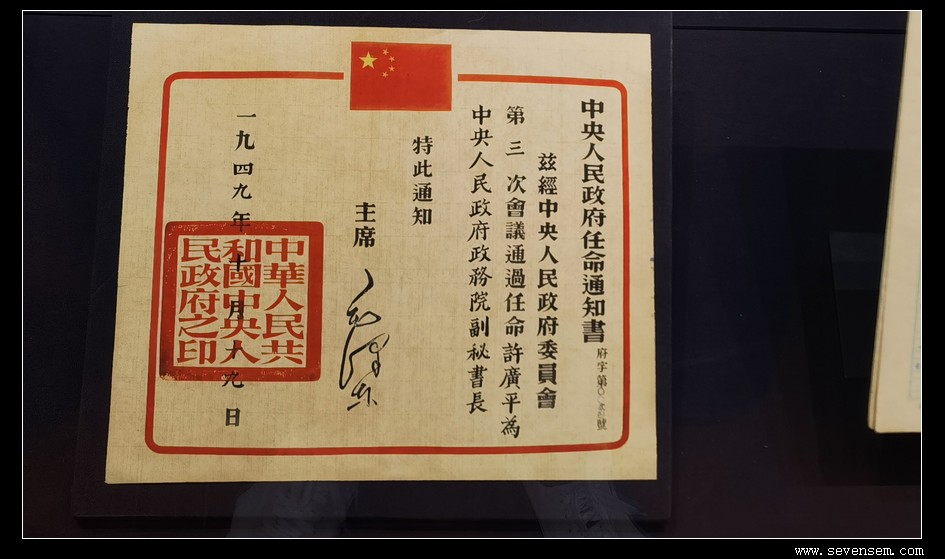 中央人民政府任命通知書
府字第
號
茲經中央人民政府委員會
第三次會議通過任命許廣平為
中央人民政府政務院副秘書長
特此通知
主席 毛澤东
一九四九年十月十九日
中華人民共
和國中央人
民政府之印
www.sevensem.com